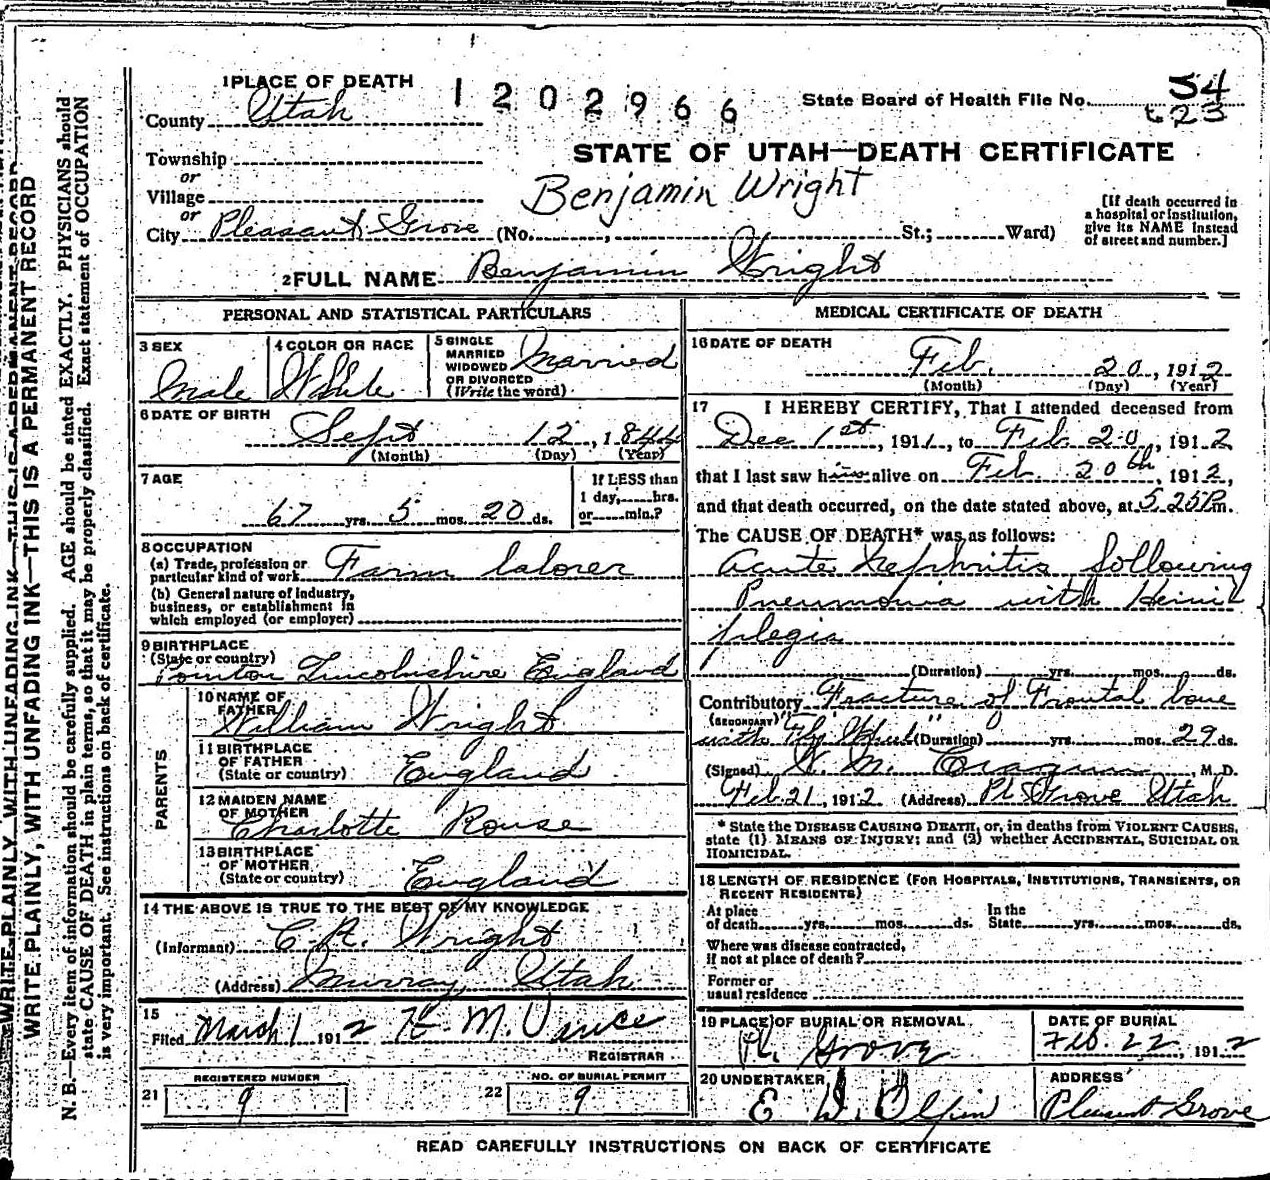 1 PLACE OF DEATH
1 2 0 2 9 6 6
State Board of Health File No. 54
623
County Utah
Township
or
Village
or
City Pleasant Grove (No. , St.; Ward)
STATE OF UTAH—DEATH CERTIFICATE
Benjamin Wright
[If death occurred in
a hospital or institution,
give its NAME instead
of street and number.]
2 FULL NAME Benjamin Wright
PERSONAL AND STATISTICAL PARTICULARS
3 SEX
Male
4 COLOR OR RACE
White
5 SINGLE
MARRIED
WIDOWED
OR DIVORCED
(Write the word)
Married
6 DATE OF BIRTH
Sept 12, 1844
(Month) (Day) (Year)
7 AGE
67 yrs. 5 mos. 20 ds.
If LESS than
1 day, hrs.
or min.?
8 OCCUPATION
(a) Trade, profession or
particular kind of work Farm laborer
(b) General nature of industry,
business, or establishment in
which employed (or employer)
9 BIRTHPLACE
(State or country)
Pointon Lincolnshire England
PARENTS
10 NAME OF
FATHER
William Wright
11 BIRTHPLACE
OF FATHER
(State or country) England
12 MAIDEN NAME
OF MOTHER
Charlotte Rouse
13 BIRTHPLACE
OF MOTHER
(State or country) England
14 THE ABOVE IS TRUE TO THE BEST OF MY KNOWLEDGE
(Informant) C. R. Wright
(Address) Murray, Utah
15
Filed March 1 1912 H. M. Vance
REGISTRAR
REGISTERED NUMBER
21 9
NO. OF BURIAL PERMIT
22 9
MEDICAL CERTIFICATE OF DEATH
16 DATE OF DEATH
Feb. 20, 1912
(Month) (Day) (Year)
17 I HEREBY CERTIFY, That I attended deceased from
Dec 1st, 1911, to Feb 20, 1912
that I last saw him alive on Feb 20th, 1912,
and that death occurred, on the date stated above, at 5.25 P.m.
The CAUSE OF DEATH* was as follows:
Acute Nephritis following
Pneumonia with Hemi
plegia
(Duration) yrs. mos. ds.
Contributory Fracture of Frontal bone
(SECONDARY)
with "Fly Wheel" (Duration) yrs. mos. 29 ds.
(Signed) , M.D.
Feb 21, 1912 (Address) Pl. Grove Utah
* State the DISEASE CAUSING DEATH, or, in deaths from VIOLENT CAUSES,
state (1) MEANS OF INJURY; and (2) whether ACCIDENTAL, SUICIDAL OR
HOMICIDAL.
18 LENGTH OF RESIDENCE (FOR HOSPITALS, INSTITUTIONS, TRANSIENTS, OR
RECENT RESIDENTS)
At place
of death yrs. mos. ds.
In the
State yrs. mos. ds.
Where was disease contracted,
if not at place of death?
Former or
usual residence
19 PLACE OF BURIAL OR REMOVAL
Pl. Grove
DATE OF BURIAL
Feb. 22, 1912
20 UNDERTAKER
E. D. Olpin
ADDRESS
Pleasant Grove
READ CAREFULLY INSTRUCTIONS ON BACK OF CERTIFICATE
WRITE PLAINLY, WITH UNFADING INK—THIS IS A PERMANENT RECORD
WRITE PLAINLY, WITH UNFADING INK—THIS IS A PERMANENT RECORD
N. B.—Every item of information should be carefully supplied. AGE should be stated EXACTLY. PHYSICIANS should
state CAUSE OF DEATH in plain terms, so that it may be properly classified. Exact statement of OCCUPATION
is very important. See instructions on back of certificate.